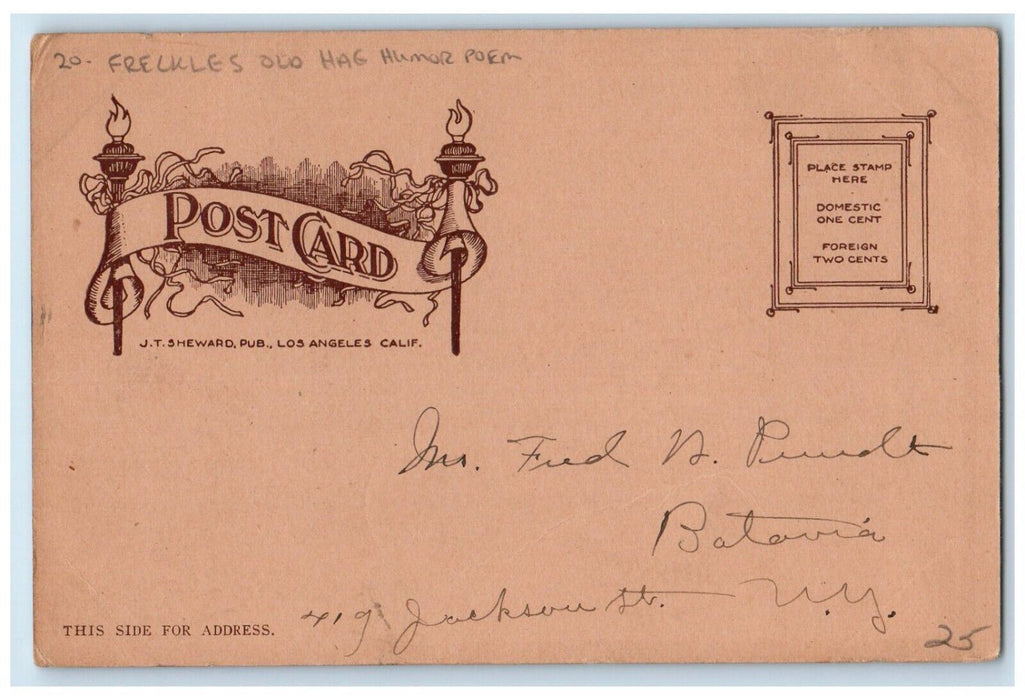 20- FRECKLES OLD HAG HUMOR POEM
POST CARD
J.T. SHEWARD, PUB., LOS ANGELES CALIF.
PLACE STAMP
HERE
DOMESTIC
ONE CENT
FOREIGN
TWO CENTS
Fred
Batavia
419 Jackson St. N.Y.
THIS SIDE FOR ADDRESS.
25